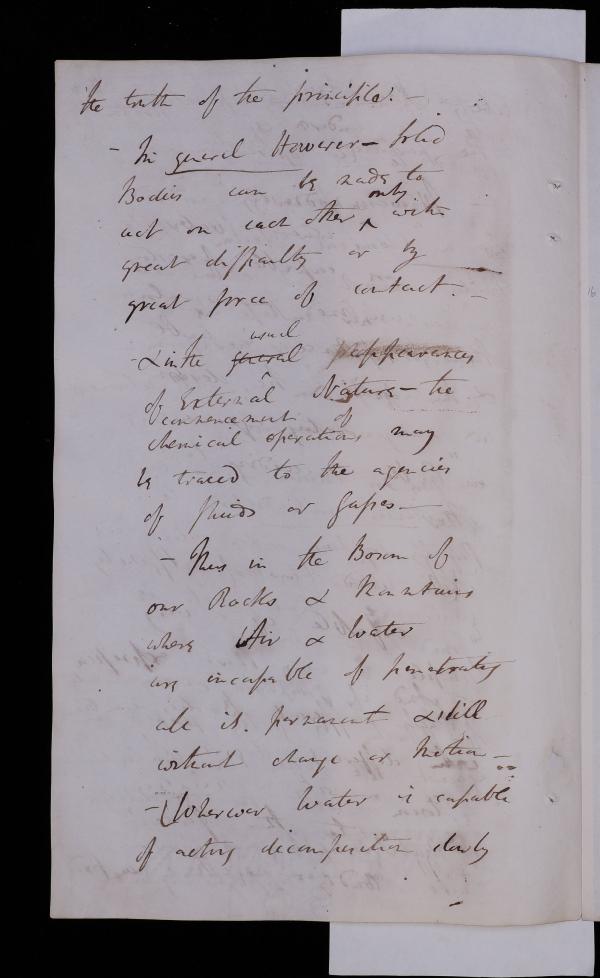 the truth of the principle. —
– In general However – solid
Bodies can be made to
only
act on each other ^ with
great difficulty or by
great force of contact. –
usual
– & in the general appearances
of External Nature – the
commencement of
chemical operations may
be traced to the agencies
of fluids or Gases –
– Thus in the Bosom of
our Rocks & Mountains
where Air & Water
are incapable of penetrating
all is permanent & still
without change or Motion –
– Wherever Water is capable
of acting decomposition slowly